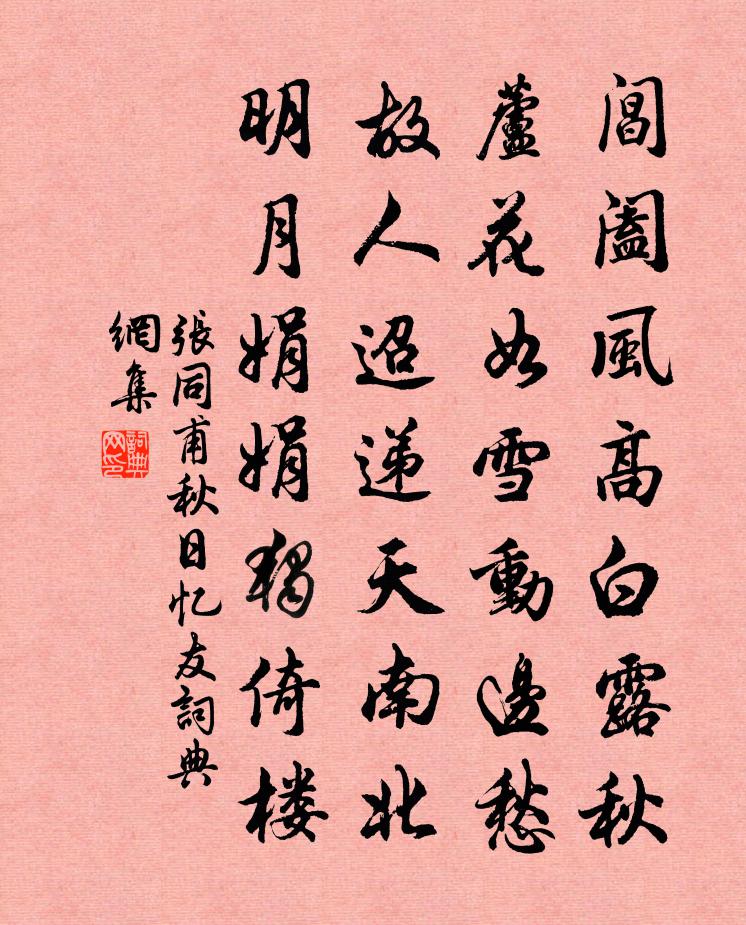 閶闔風高白露秋
蘆花如雪動邊愁
故人迢递天南北
明月娟娟獨倚楼
張同甫秋日忆友詞典
網集
詞典
网印